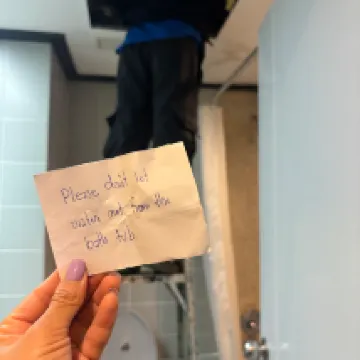 Please don't let
water out from the
bath tub